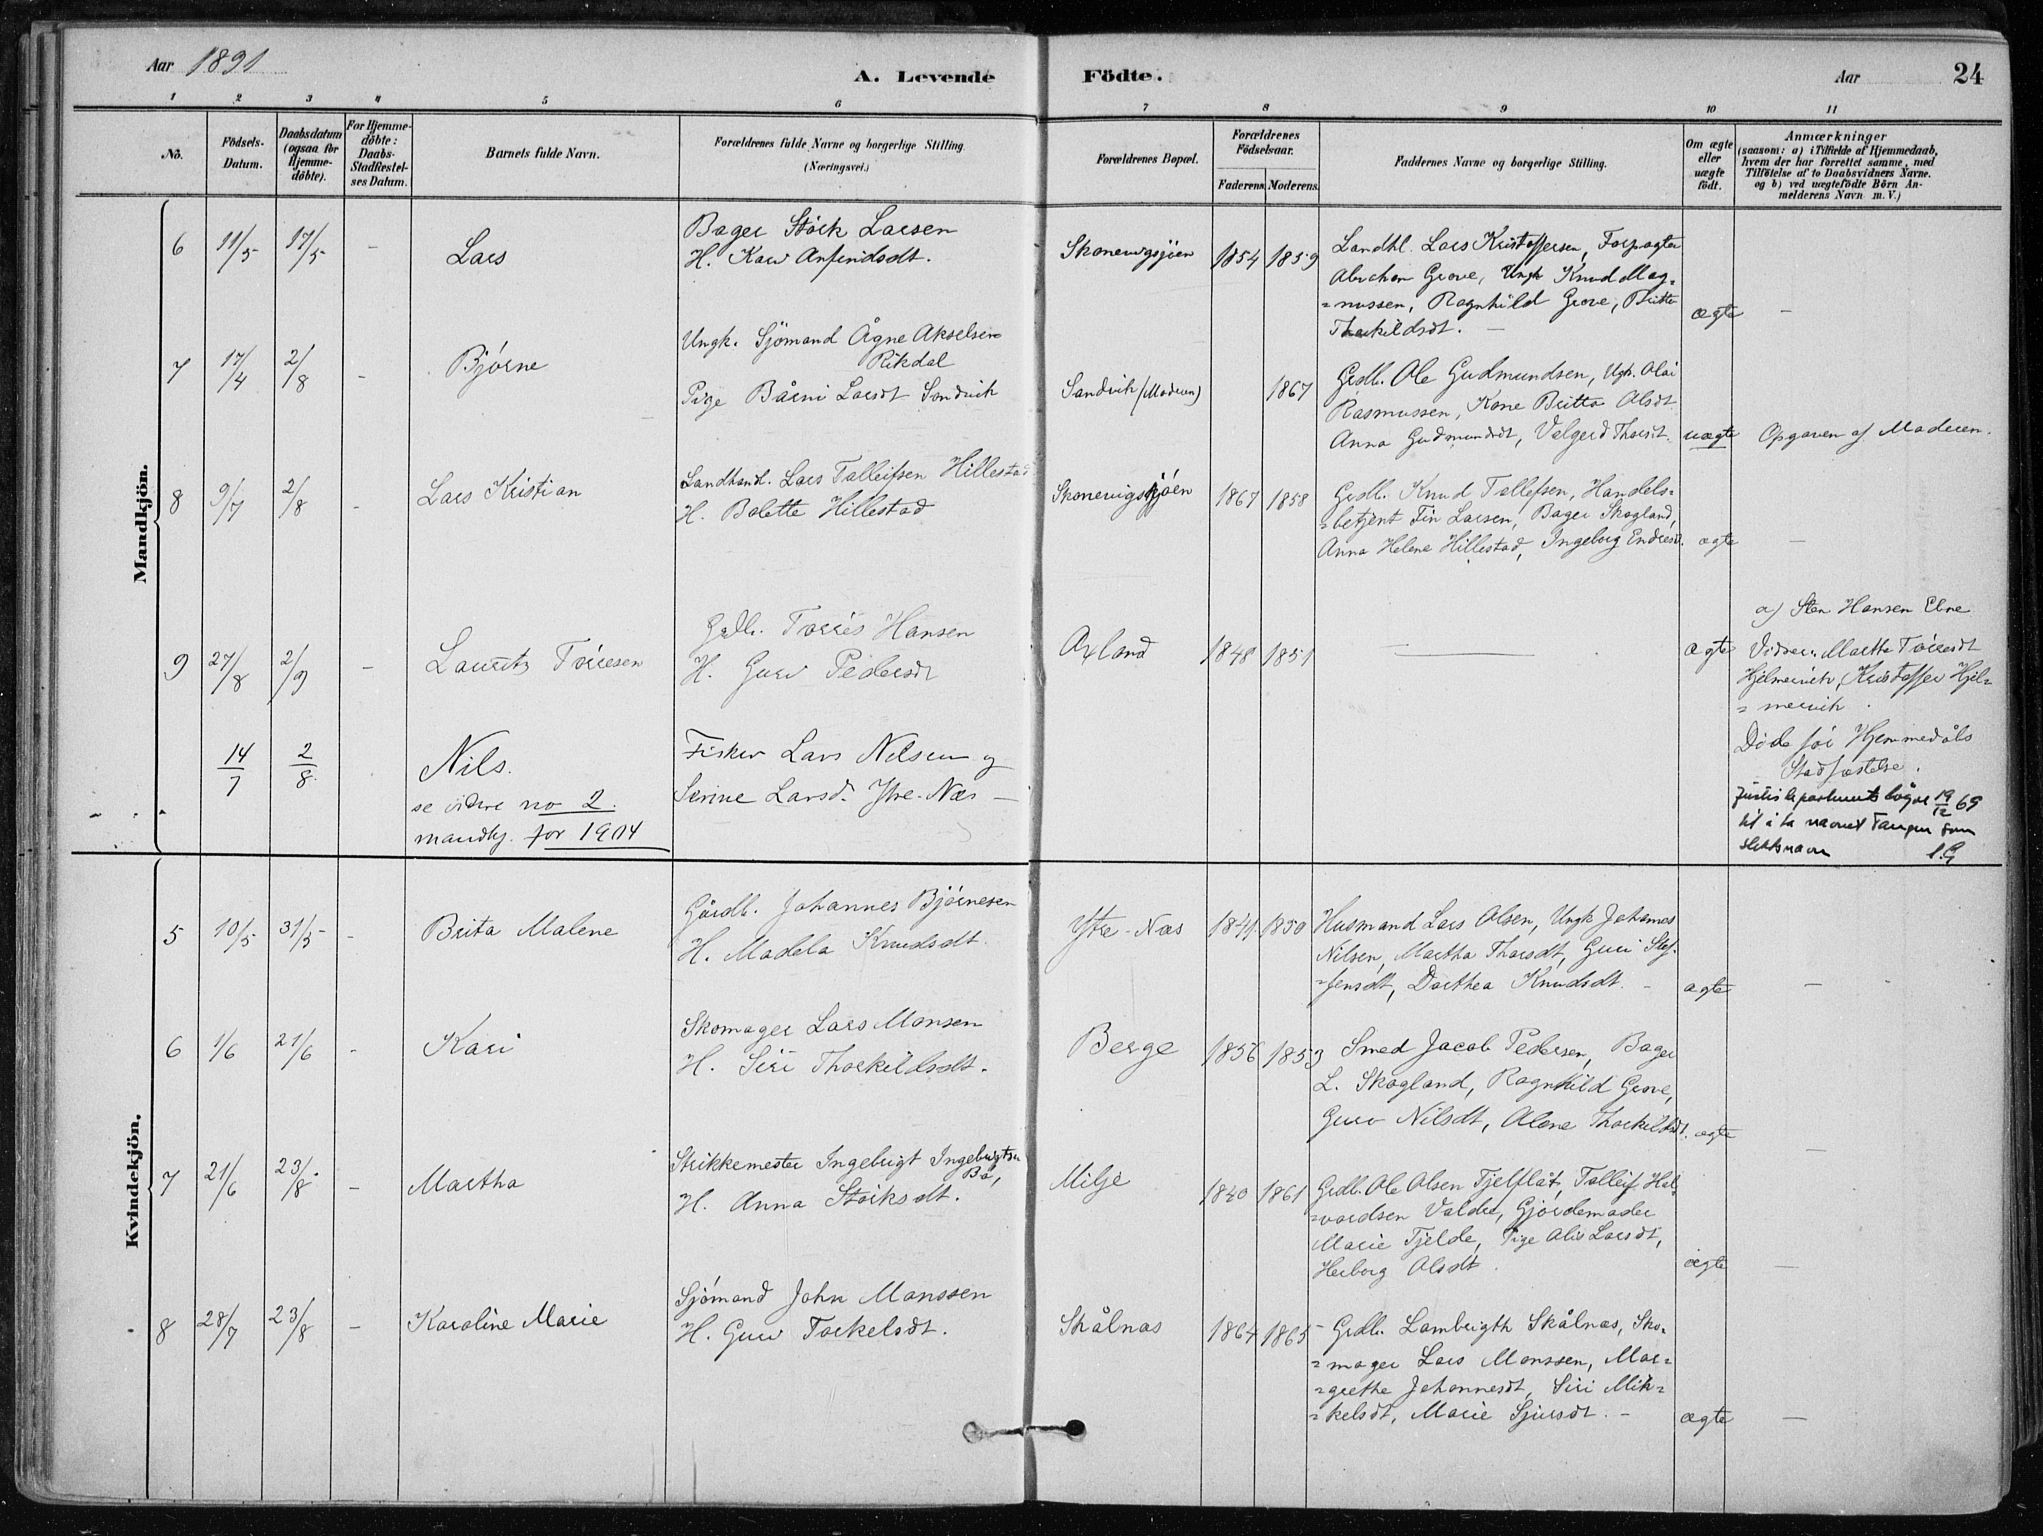 Aar 1891
A. Levende Födte.
Aar 24
1 2 3 4 5 6 7 8 9 10 11
No.
Födsels-Datum.
Daabsdatum (ogsaa for Hjemme-döbte).
For Hjemme-döbte: Daabs-Stadfæstel-ses Datum.
Barnets fulde Navn.
Forældrenes fulde Navne og borgerlige Stilling.
(Næringsvei.)
Forældrenes Bopæl.
Forældrenes Födselsaar.
Faderens. Moderens.
Faddernes Navne og borgerlige Stilling.
Om ægte eller uægte födt.
Anmærkninger
(saasom: a) i Tilfælde af Hjemmedaab,
hvem der har forrettet samme, med
Tilföielse af to Daabsvidners Navne.
og b) ved uægtefödte Börn An-
melderens Navn m. V.)
Mandkjön.
6 11/5 17/5 - Lars
Bager Störk Larsen
H. Kari Anfindsdt.
Skonevigsjøen 1854 1859
Landhl. Lars Kristoffersen, Forpagter
Abraham Grove, Ungk Knud Mag=
=nussen, Ragnhild Grove, Britta
Thorkildsdt. -
ægte -
7 17/4 2/8 - Bjørne
Ungk. Sjömand Ågne Akselsen
Rikdal
Pige Bårni Larsdt Sandvik
Sandvik (Moderen) 1867
Grdb. Ole Gudmundsen, Ugk. Olai
Rasmussen, Kone Britta Olsdt.
Anna Gudmundsdt, Valgerd Thorsdt.
uægte Opgaven af Moderen.
8 9/7 2/8 - Lars Kristian
Landhandl. Lars Talleifsen Hillestad
H. Bolette Hillestad
Skonevigsjøen 1867 1858
Grdb. Knud Tollefsen, Handels=
=betjent Fin Larsen, Bager Skogland,
Anna Helene Hillestad, Ingeborg Endresd.
ægte -
9 27/8 2/9 - Lauritz Törresen
Grdb. Torres Hansen
H. Guro Pedersdt
Axland 1848 1851
ægte
a) Sten Hansen Ebne
Vidner: Marthe Törresdt
Hjelmervik, Kristoffer Hjel=
=mervik.
Döde för Hjemmedåbs
Stadfæstelse.
14/7 2/8 Nils.
se videre no 2.
mandkj. for 1904
Fisker Lars Nilsen og
Serine Larsd. Ytre-Næs -
Justisdepartementets løyve 19/12 69
til å ta navnet Tangen som
slektsnavn
Kvindekjön.
5 10/5 31/5 - Brita Malene
Gårdb. Johannes Bjørnesen
H. Madela Knudsdt.
Ytre-Næs 1841 1850
Husmand Lars Olsen, Ungk Johannes
Nilsen, Martha Thorsdt, Guri Stef=
=fensdt, Dorthea Knudsdt. -
ægte -
6 1/6 21/6 - Kari
Skomager Lars Monsen
H. Siri Thorkildsdt.
Berge 1856 1853
Smed Jacob Pedersen, Bager
L. Skogland, Ragnhild Grove,
Guro Nilsdt, Alene Thorkildsdt.
ægte -
7 21/6 23/8 - Martha
Strikkemester Ingebrigt Ingebrigtsen
Bö,
H. Anna Störksdt.
Milje 1840 1861
Grdb. Ole Olsen Tjelflåt, Tollef Hal=
=vordsen Valdre, Gjordemoder
Marie Tjelde, Pige Alis Larsdt,
Herborg Olsdt.
ægte -
8 28/7 23/8 - Karoline Marie
Sjömand John Monssen
H. Guro Torkelsdt.
Skålnæs 1864 1865
Grdb. Lambrigth Skålnæs, Sko=
=mager Lars Monssen, Mar=
=grethe Johannesdt, Siri Mik=
=kelsdt, Marie Sjursdt. -
ægte -